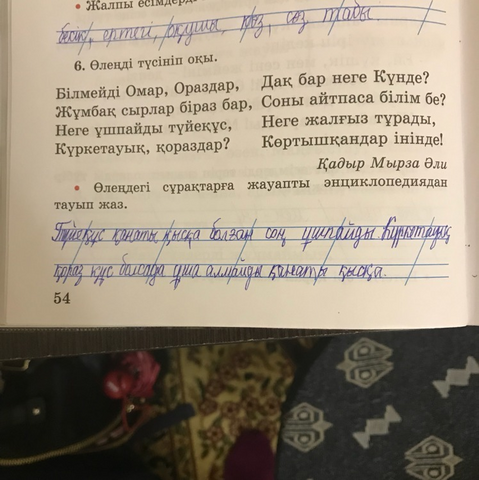 • Жалпы есімдерд
бесік, ертегі, оқушы, қыз, сөз
6. Өлеңді түсініп оқы.
Білмейді Омар, Ораздар,
Жұмбақ сырлар біраз бар,
Неге ұшпайды түйеқұс,
Күркетауық, қораздар?
Дақ бар неге Күнде?
Соны айтпаса білім бе?
Неге жалғыз тұрады,
Көртышқандар інінде!
Қадыр Мырза Әли
• Өлеңдегі сұрақтарға жауапты энциклопедиядан
тауып жаз.
Түйеқұс қанаты қысқа болған соң ұшпайды Күркетауық
қораз құс болсада ұша алмайды қанаты қысқа.
54